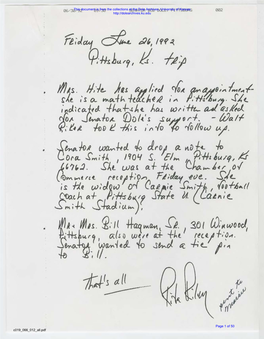 This document is from the collections at the Dole Archives, University of Kansas
http://dolearchives.ku.edu
002
Friday June 26, 1992
Pittsburg, Ks. trip
• Mrs. Hite has applied for an appointment
she is a math teacher in Pittsburg. She
indicated that she has written and asked
for Senator Dole's support. - Walt
Riker took this info to follow up.
• Senator wanted to drop a note to
Cora Smith, 1904 S. Elm Pittsburg, Ks
66762. She was at the Chamber of
Commerce reception, Friday eve. She
is the widow of Carnie Smith, football
coach at Pittsburg State U (Carnie
Smith Stadium).
• Mr + Mrs. Bill Hagman, Sr., 301 Winwood,
Pittsburg, also were at the reception.
Senator wanted to send a tie pin
to Bill.
That's all
Page 1 of 50